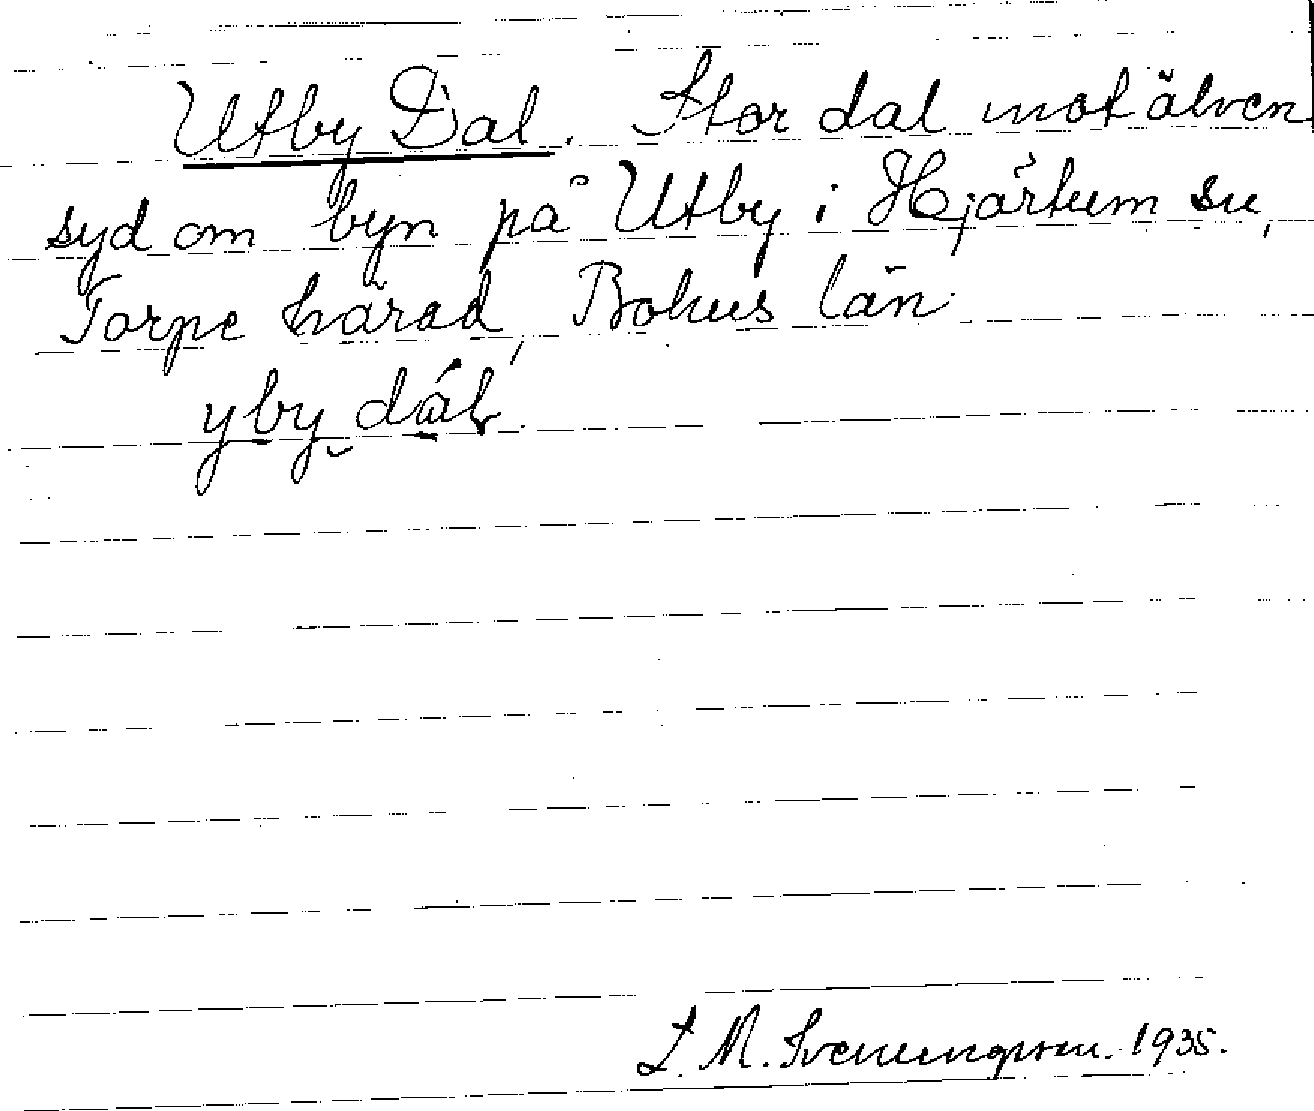 Utby Dal. Stor dal mot älven
syd om byn på Utby i Hjärtum sn,
Torpe härad, Bohus län.
yby dál
L. M. Svenungsson. 1935.